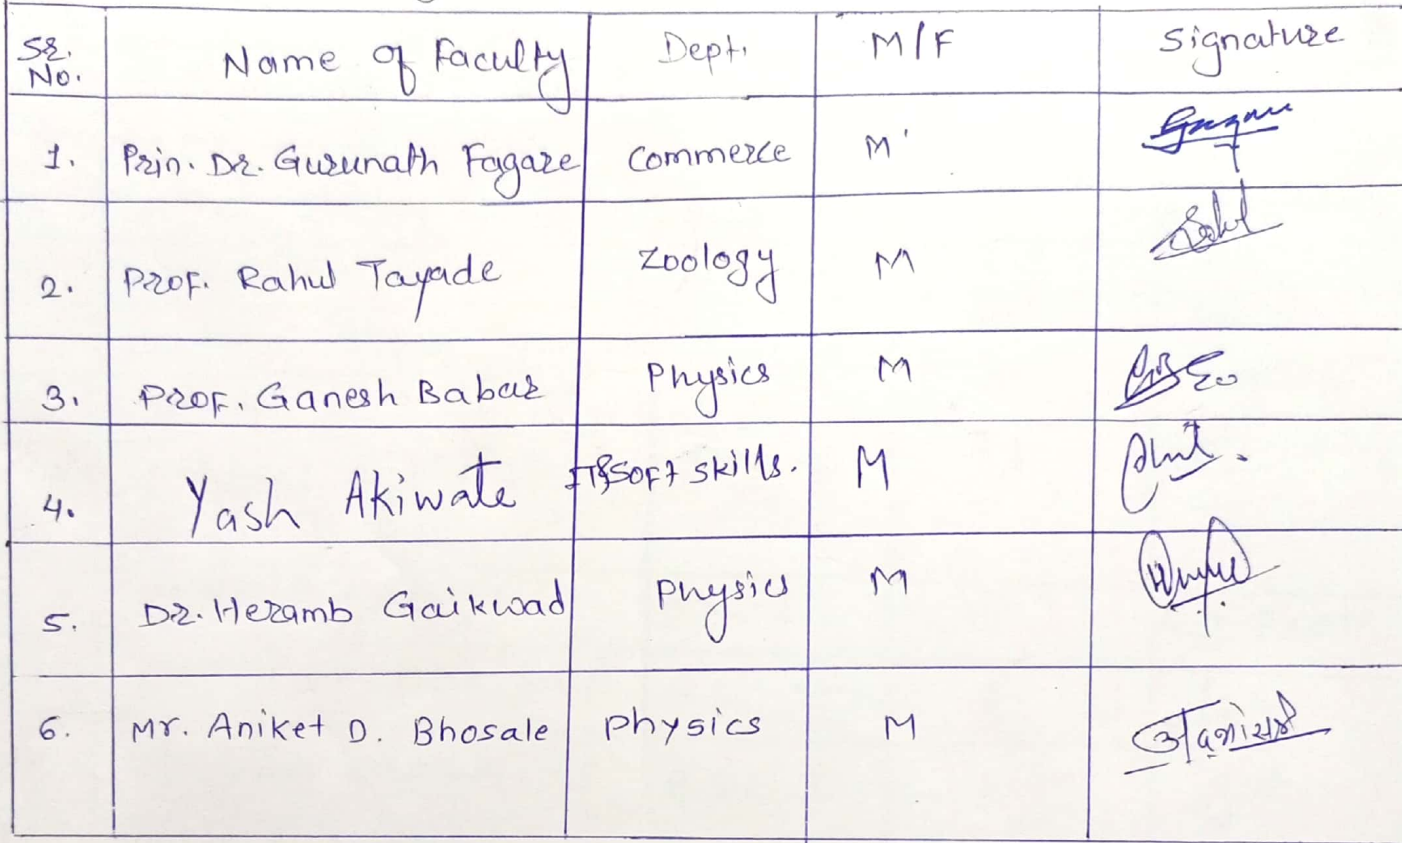 Sr. No. Name of Faculty Dept. M/F Signature
1. Prin. Dr. Gurunath Fagare Commerce M
2. Prof. Rahul Tayade Zoology M
3. Prof. Ganesh Babar Physics M
4. Yash Akiwate IT & Soft Skills. M
5. Dr. Heramb Gaikwad Physics M
6. Mr. Aniket D. Bhosale Physics M